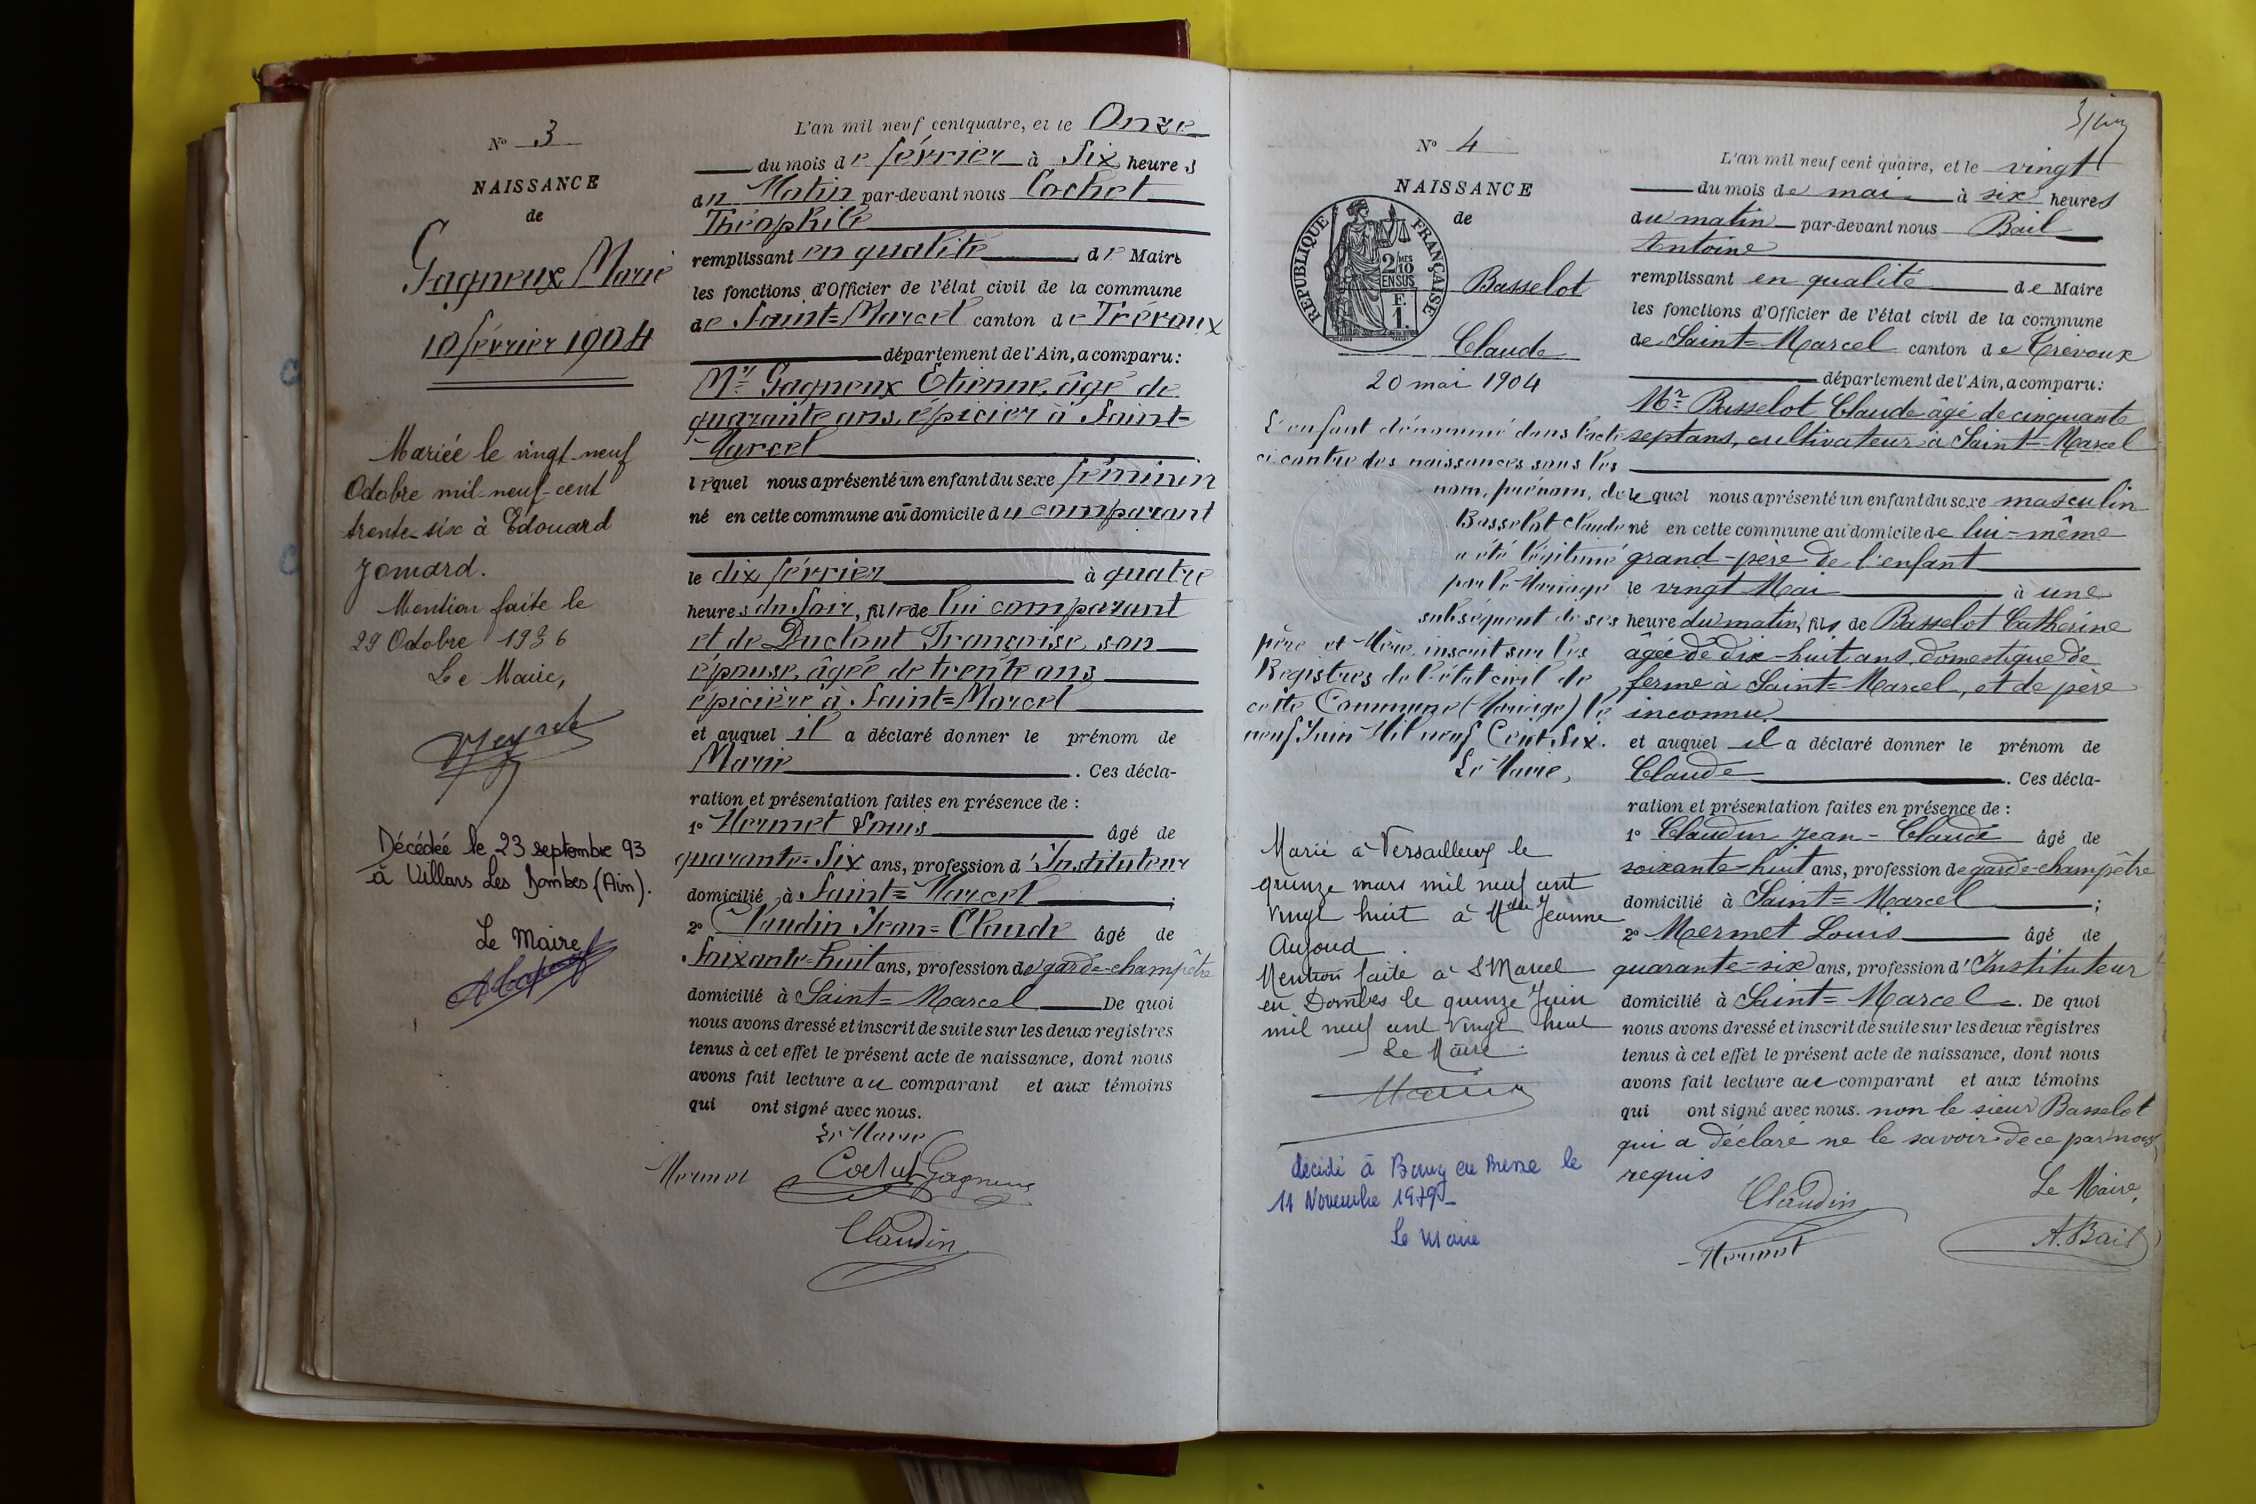 N° 3
NAISSANCE
de
Gagneux Marie
10 février 1904
Mariée le vingt-neuf
Octobre mil-neuf-cent
trente-six à Edouard
Jomard.
Mention faite le
29 Octobre 1936
Le Maire,
Décédée le 23 septembre 93
à Villars Les Dombes (Ain).
Le Maire
L'an mil neuf cent quatre, et le Onze
du mois de février à Six heures
du Matin par-devant nous Cochet
Théophile
remplissant en qualité de Maire
les fonctions d'Officier de l'état civil de la commune
de Saint=Marcel canton de Trévoux
département de l'Ain, a comparu:
Mr Gagneux Etienne, âgé de
quarante ans, épicier à Saint-
Marcel
lequel nous a présenté un enfant du sexe féminin
né en cette commune au domicile du comparant
le dix février à quatre
heures du Soir, fille de lui comparant
et de Duclout Françoise, son
épouse, âgée de trente ans
épicière à Saint=Marcel
et auquel il a déclaré donner le prénom de
Marie. Ces décla-
ration et présentation faites en présence de :
1° Mermet Louis âgé de
quarante=Six ans, profession d'Instituteur
domicilié à Saint=Marcel ;
2° Claudin Jean=Claude âgé de
Soixante=huit ans, profession de garde-champêtre
domicilié à Saint=Marcel De quoi
nous avons dressé et inscrit de suite sur les deux registres
tenus à cet effet le présent acte de naissance, dont nous
avons fait lecture au comparant et aux témoins
qui ont signé avec nous.
Le Maire
Mermet Cochet Gagneux
Claudin
N° 4
NAISSANCE
de
RÉPUBLIQUE FRANÇAISE
2 MES
10
EN SUS
F.
1.
Basselot
Claude
20 mai 1904
L'enfant dénommé dans l'acte
ci contre des naissances sous les
nom, prénom, de
Basselot Claude
a été légitimé
par le Mariage
subséquent de ses
père et Mère, inscrit sur les
Registres de l'état civil de
cette Commune (Mariage) le
neuf Juin Mil neuf Cent Six.
Le Maire,
Marié à Versailleux le
quinze mars mil neuf cent
vingt huit à Mdlle Jeanne
Aujoud
Mention faite à St Marcel
en Dombes le quinze Juin
mil neuf cent vingt huit
Le Maire
décédé à Bourg en Bresse le
11 Novembre 1979
Le Maire
L'an mil neuf cent quatre, et le vingt
du mois de mai à six heures
du matin par-devant nous Bail
Antoine
remplissant en qualité de Maire
les fonctions d'Officier de l'état civil de la commune
de Saint=Marcel canton de Trévoux
département de l'Ain, a comparu:
Mr Basselot Claude âgé de cinquante
sept ans, cultivateur à Saint=Marcel
lequel nous a présenté un enfant du sexe masculin
né en cette commune au domicile de lui-même
grand-père de l'enfant
le vingt Mai à une
heure du matin, fils de Basselot Catherine
âgée de dix-huit ans, domestique de
ferme à Saint=Marcel, et de père
inconnu.
et auquel il a déclaré donner le prénom de
Claude. Ces décla-
ration et présentation faites en présence de :
1° Claudin Jean-Claude âgé de
soixante-huit ans, profession de garde-champêtre
domicilié à Saint=Marcel ;
2° Mermet Louis âgé de
quarante-six ans, profession d'Instituteur
domicilié à Saint=Marcel. De quoi
nous avons dressé et inscrit de suite sur les deux registres
tenus à cet effet le présent acte de naissance, dont nous
avons fait lecture au comparant et aux témoins
qui ont signé avec nous. non le sieur Basselot
qui a déclaré ne le savoir de ce par nous
requis
Claudin Le Maire,
Mermet A. Bail